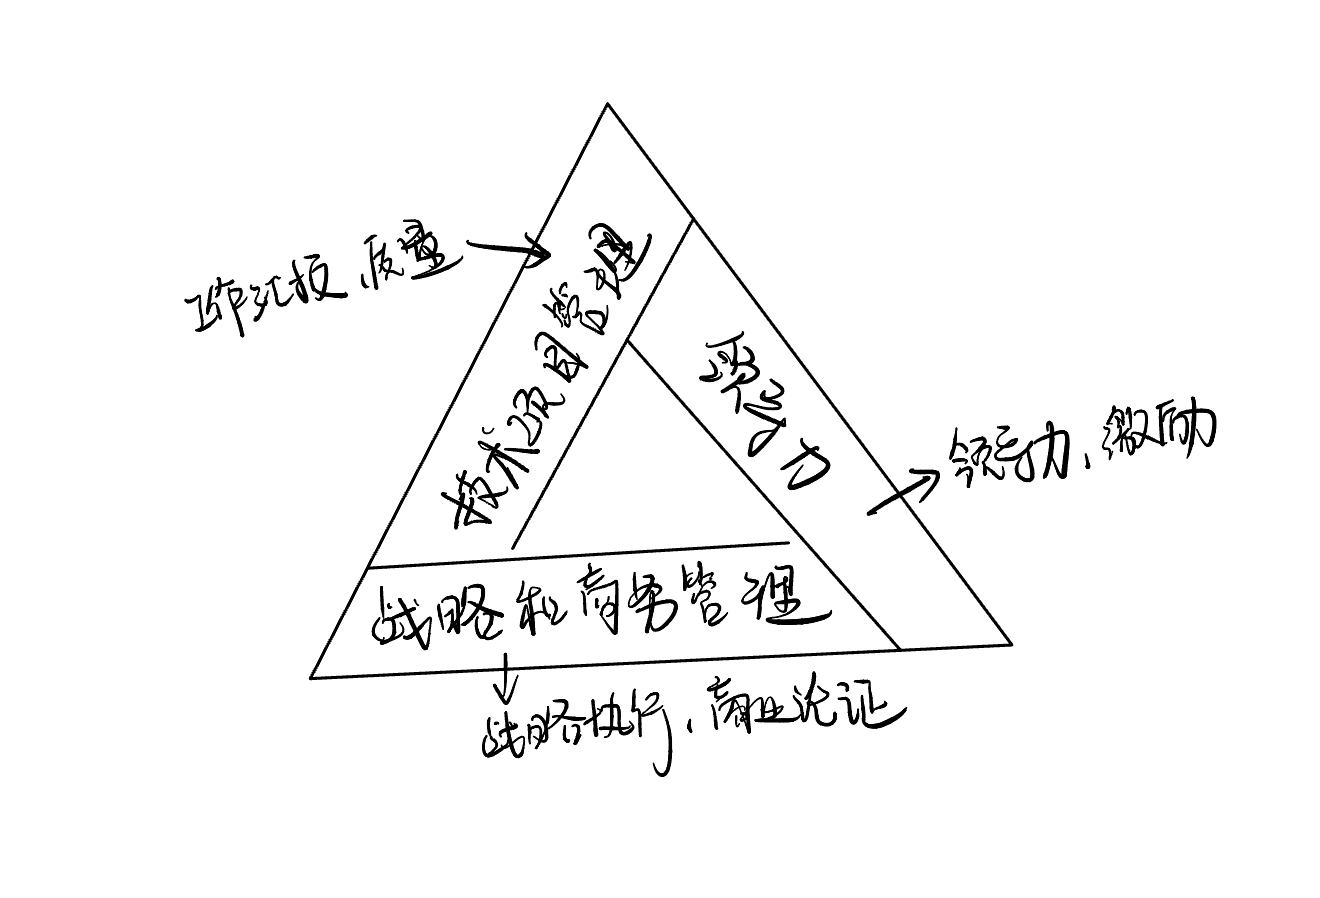 工作汇报、质量
技术项目管理
领导力
领导力、激励
战略和商务管理
战略执行、商业论证